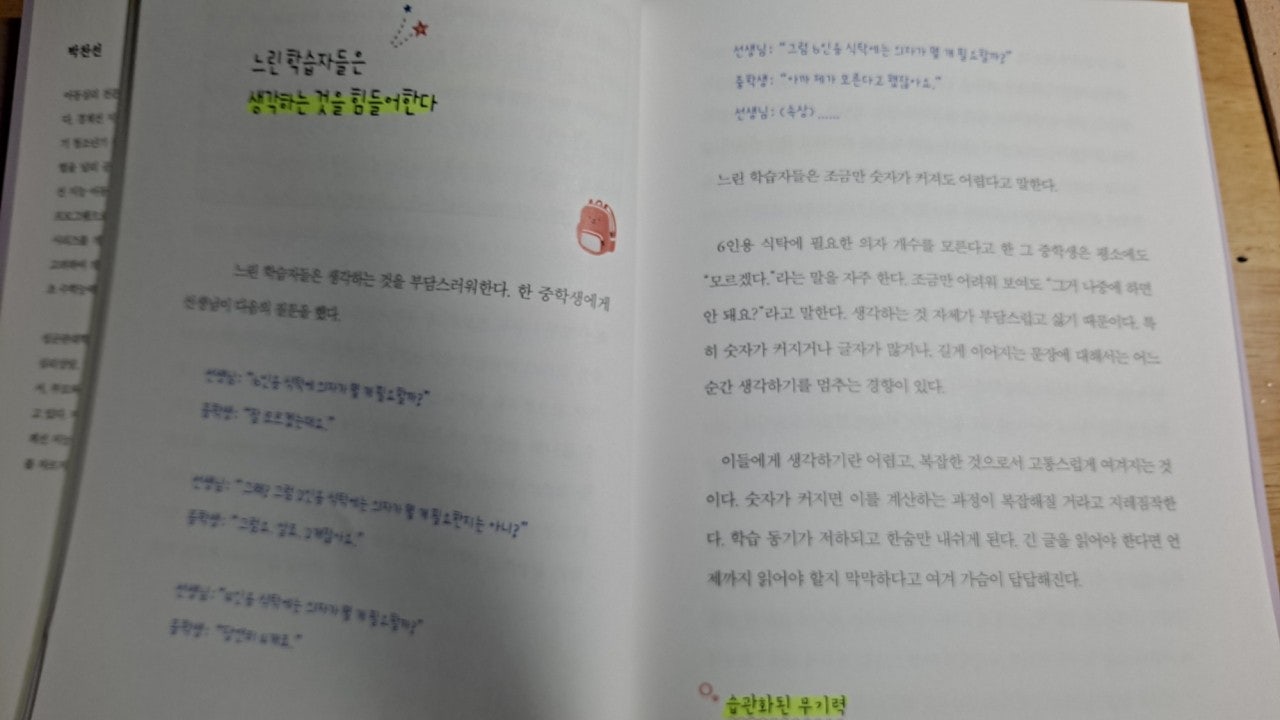 박찬선
느린 학습자들은
생각하는 것을 힘들어한다
느린 학습자들은 생각하는 것을 부담스러워한다. 한 중학생에게
선생님이 다음의 질문을 했다.
선생님: "6인용 식탁에 의자가 몇 개 필요할까?"
중학생: "잘 모르겠는데요."
선생님: "그래? 그럼 2인용 식탁에는 의자가 몇 개 필요한지는 아니?"
중학생: "그럼요. 알죠. 2개잖아요."
선생님: "4인용 식탁에는 의자가 몇 개 필요할까?"
중학생: "당연히 4개죠."
선생님: "그럼 6인용 식탁에는 의자가 몇 개 필요할까?"
중학생: "아까 제가 모른다고 했잖아요."
선생님: (속상)……
느린 학습자들은 조금만 숫자가 커져도 어렵다고 말한다.
6인용 식탁에 필요한 의자 개수를 모른다고 한 그 중학생은 평소에도
"모르겠다."라는 말을 자주 한다. 조금만 어려워 보여도 "그거 나중에 하면
안 돼요?"라고 말한다. 생각하는 것 자체가 부담스럽고 싫기 때문이다. 특
히 숫자가 커지거나 글자가 많거나, 길게 이어지는 문장에 대해서는 어느
순간 생각하기를 멈추는 경향이 있다.
이들에게 생각하기란 어렵고, 복잡한 것으로서 고통스럽게 여겨지는 것
이다. 숫자가 커지면 이를 계산하는 과정이 복잡해질 거라고 지레짐작한
다. 학습 동기가 저하되고 한숨만 내쉬게 된다. 긴 글을 읽어야 한다면 언
제까지 읽어야 할지 막막하다고 여겨 가슴이 답답해진다.
습관화된 무기력